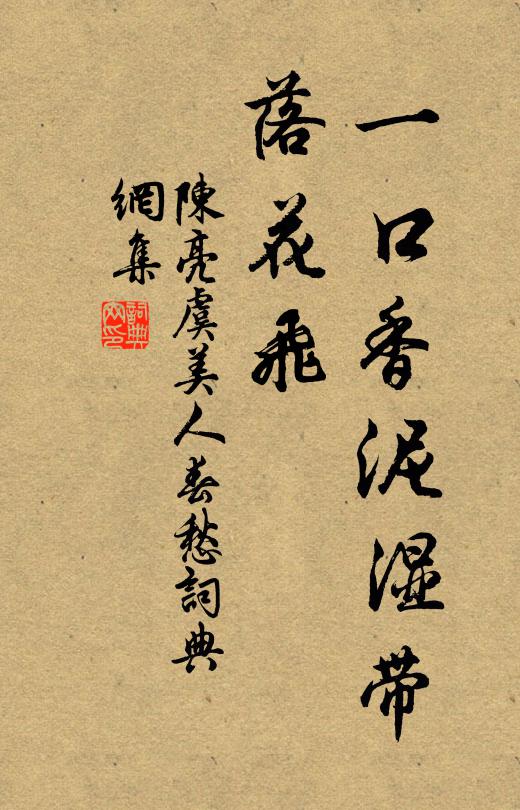 一口香泥湿帶
落花飛
陳亮虞美人春愁詞典
網集
詞典網印